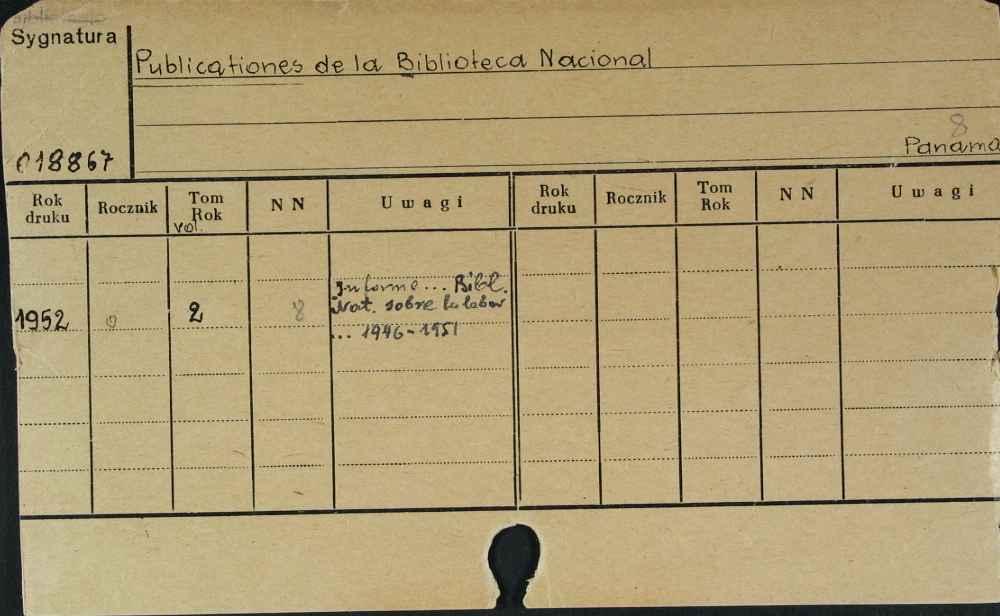 Sygnatura
Publicationes de la Biblioteca Nacional
8
Panama
018867
Rok druku Rocznik Tom Rok N N Uwagi Rok druku Rocznik Tom Rok N N Uwagi
vol.
Informe... Bibl.
1952 2 8 Nat. sobre la labor
... 1946-1951